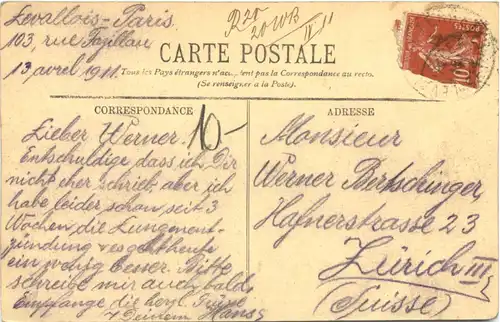 Levallois-Paris
103, rue Fazillau
13 avril 1911
R20
20WB
IV 11
CARTE POSTALE
Tous les Pays étrangers n'acceptent pas la Correspondance au recto.
(Se renseigner à la Poste).
CORRESPONDANCE
ADRESSE
10-
Lieber Werner.
Entschuldige dass ich Dir
nicht eher schrieb, aber ich
habe leider schon seit 3
Wochen die Lungenent-
zündung & es geht heute
ein wenig besser. Bitte
schreibe mir auch bald.
Empfange die herzl. Grüsse
v Deinem Hans
Monsieur
Werner Bertschinger
Hafnerstrasse 23
Zürich III
(Suisse)
10